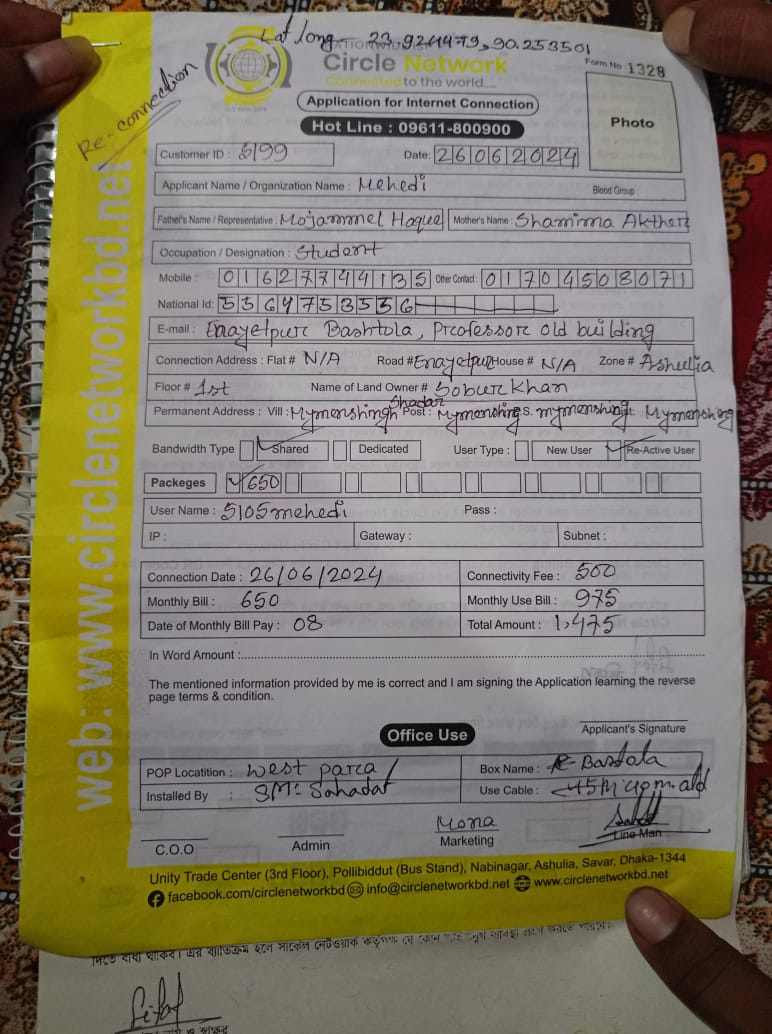 Lat long - 23.924479, 90.253501
Re-connection
Circle Network
Connected to the world....
Form No 1328
Application for Internet Connection
Photo
Hot Line : 09611-800900
Customer ID : 5199
Date: 26062024
Applicant Name / Organization Name : Mehedi
Blood Group :
Father's Name / Representative : Mojammel Haque
Mother's Name : Shamima Akther
Occupation / Designation : Student
Mobile : 01627744135 Other Contact : 01704508071
National Id: 5564753556
E-mail : Enayetpur Bashtola, Professor old building
Connection Address : Flat # N/A Road # Enayetpur House # N/A Zone # Ashulia
Floor # 1st Name of Land Owner # Sobur Khan
Shadar
Permanent Address : Vill : Mymenshingh Post : Mymenshing P.S. mymenshing Mymenshing
Bandwidth Type Shared Dedicated User Type : New User Re-Active User
Packeges 650
User Name : 5105mehedi Pass :
IP : Gateway : Subnet :
Connection Date : 26/06/2024 Connectivity Fee : 500
Monthly Bill : 650 Monthly Use Bill : 975
Date of Monthly Bill Pay : 08 Total Amount : 1,475
In Word Amount :
The mentioned information provided by me is correct and I am signing the Application learning the reverse
page terms & condition.
Applicant's Signature
Office Use
POP Locatition : west para Box Name : Bastala
Installed By : SM: Sahadat Use Cable : 45M
Mona
C.O.O Admin Marketing Line Man
Unity Trade Center (3rd Floor), Pollibiddut (Bus Stand), Nabinagar, Ashulia, Savar, Dhaka-1344
facebook.com/circlenetworkbd info@circlenetworkbd.net www.circlenetworkbd.net
web: www.circlenetworkbd.net